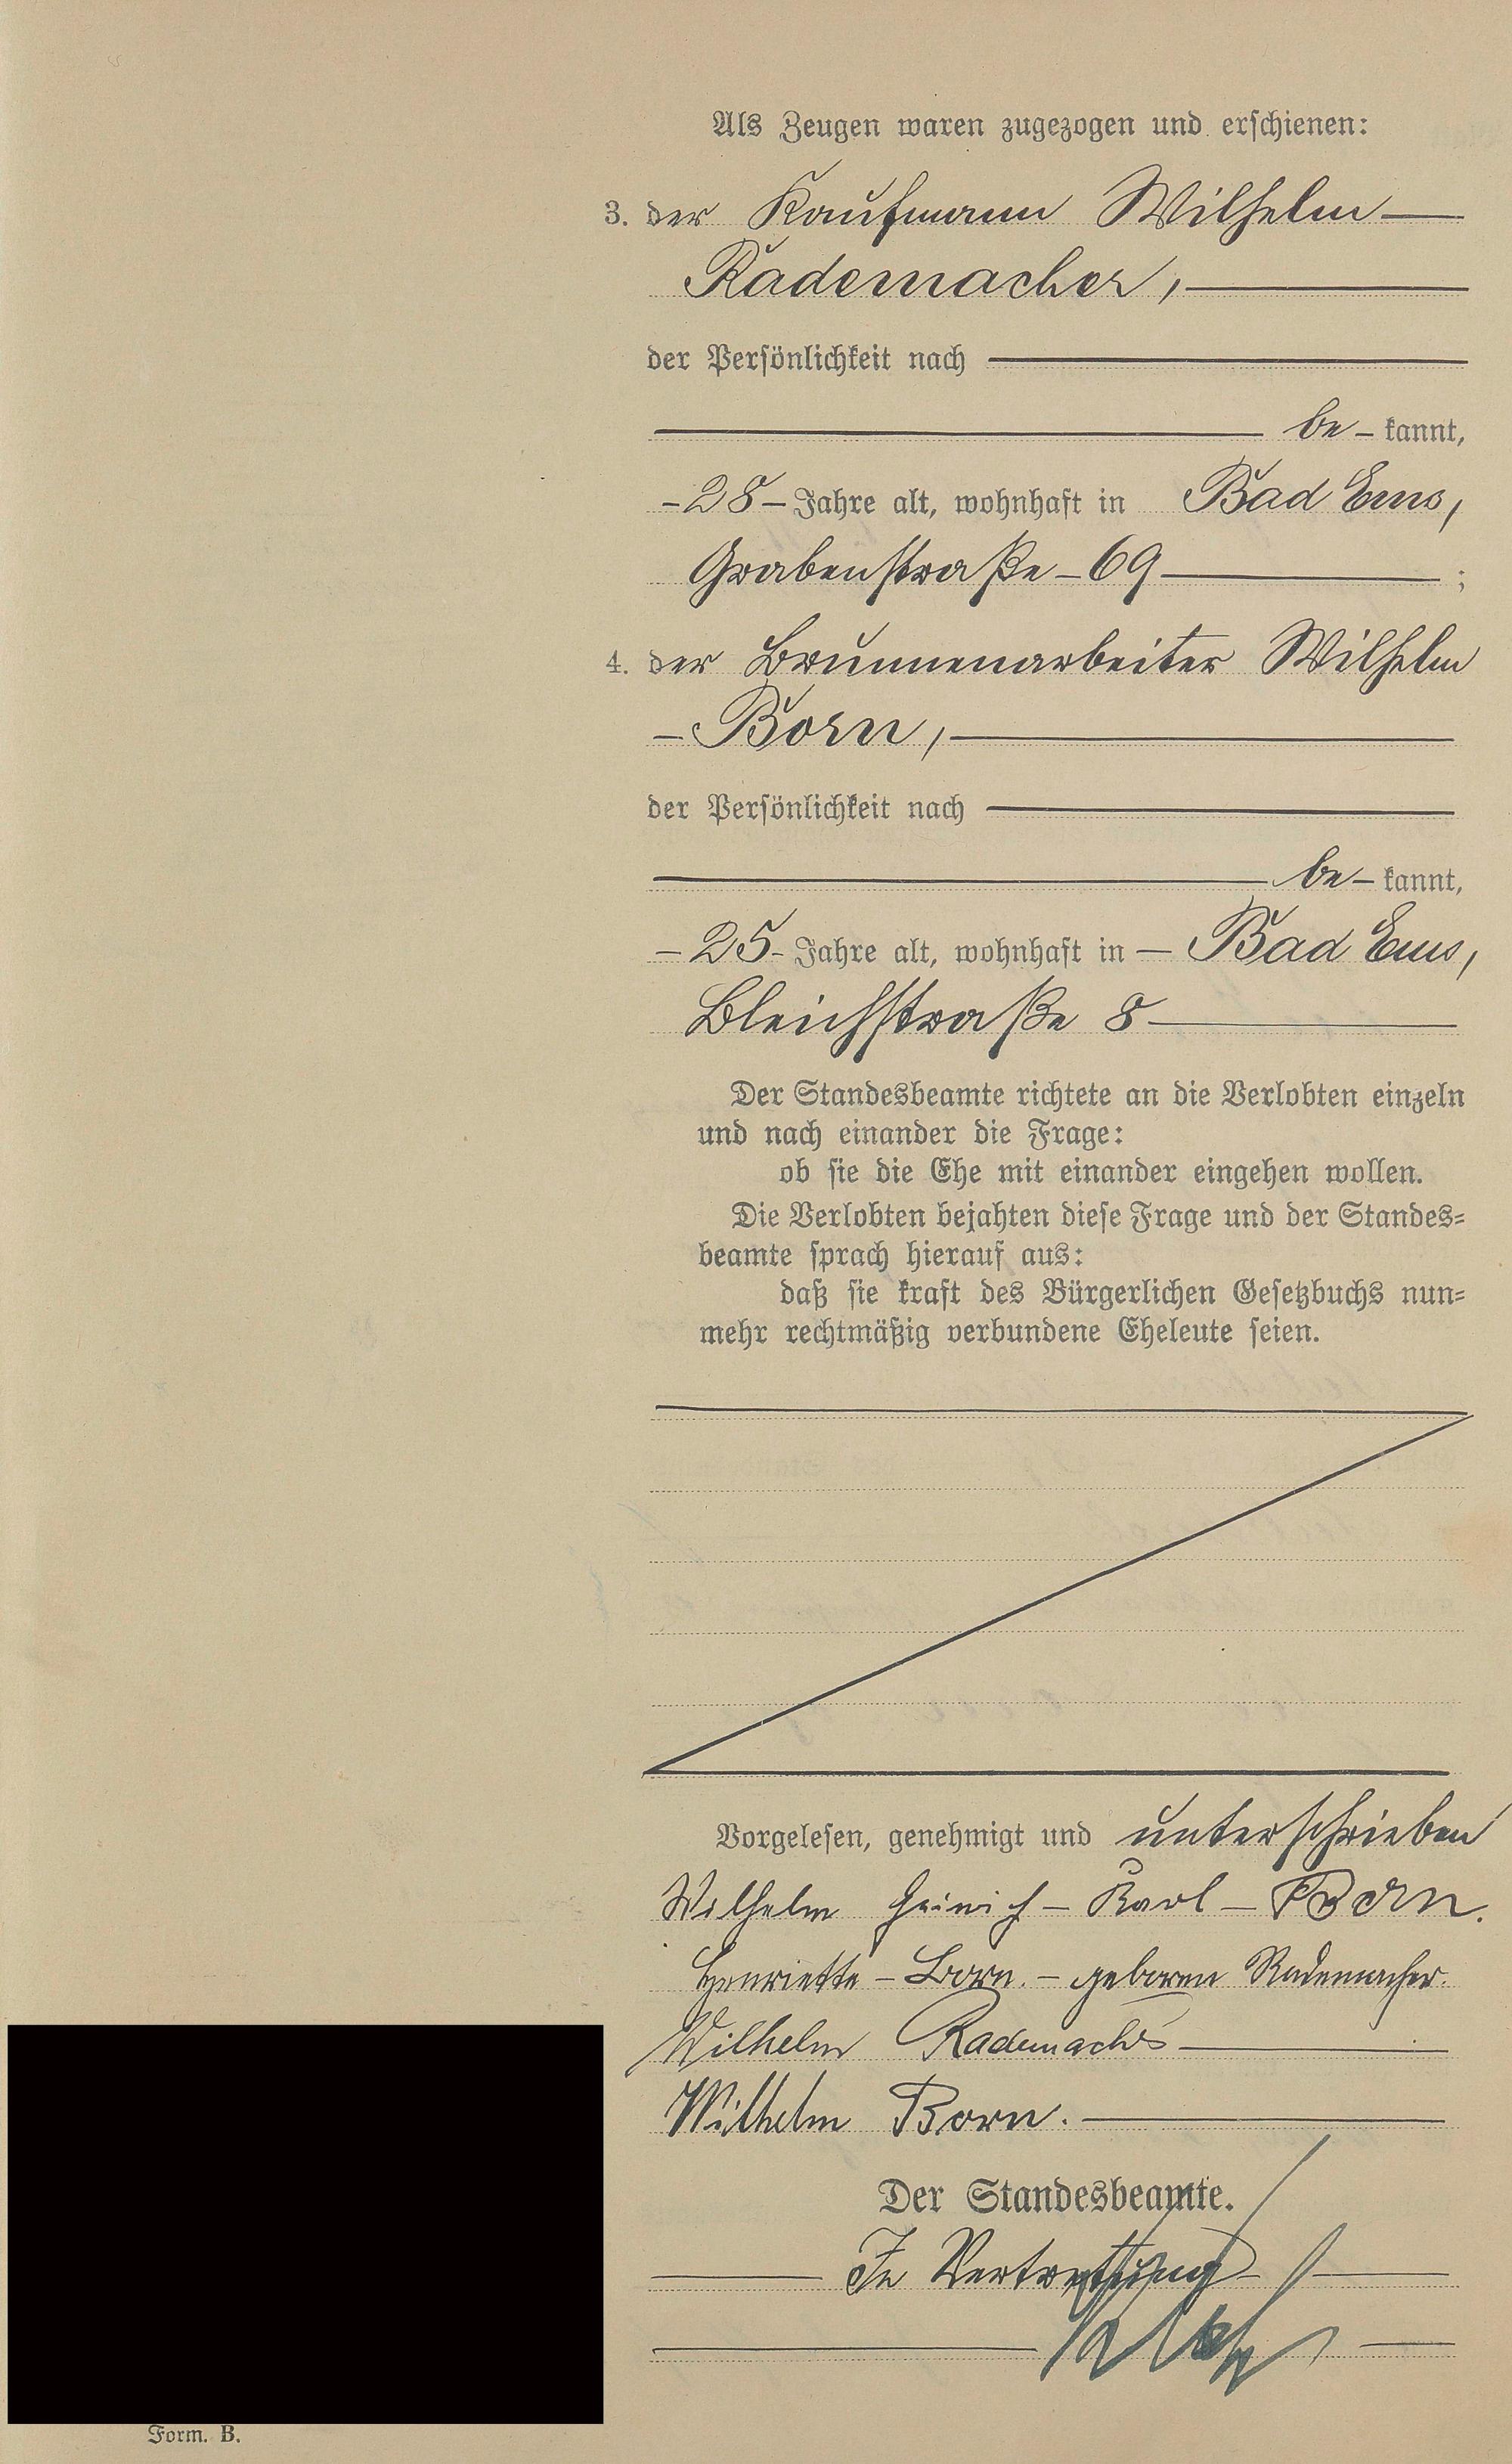 Als Zeugen waren zugezogen und erschienen:
3. der Kaufmann Wilhelm —
Rademacher, —
der Persönlichkeit nach —
— be - kannt,
- 28 - Jahre alt, wohnhaft in Bad Ems,
Grabenstraße - 69 — ;
4. der Brunnenarbeiter Wilhelm
- Born, —
der Persönlichkeit nach —
— be - kannt,
- 25 - Jahre alt, wohnhaft in — Bad Ems,
Bleichstraße 8 —
Der Standesbeamte richtete an die Verlobten einzeln
und nach einander die Frage:
ob sie die Ehe mit einander eingehen wollen.
Die Verlobten bejahten diese Frage und der Standes-
beamte sprach hierauf aus:
daß sie kraft des Bürgerlichen Gesetzbuchs nun-
mehr rechtmäßig verbundene Eheleute seien.
Vorgelesen, genehmigt und unterschrieben
Wilhelm Heinrich - Karl - Born.
Henriette - Born. - geboren Rademacher.
Wilhelm Rademacher —
Wilhelm Born. —
Der Standesbeamte.
— In Vertretung —
Form. B.